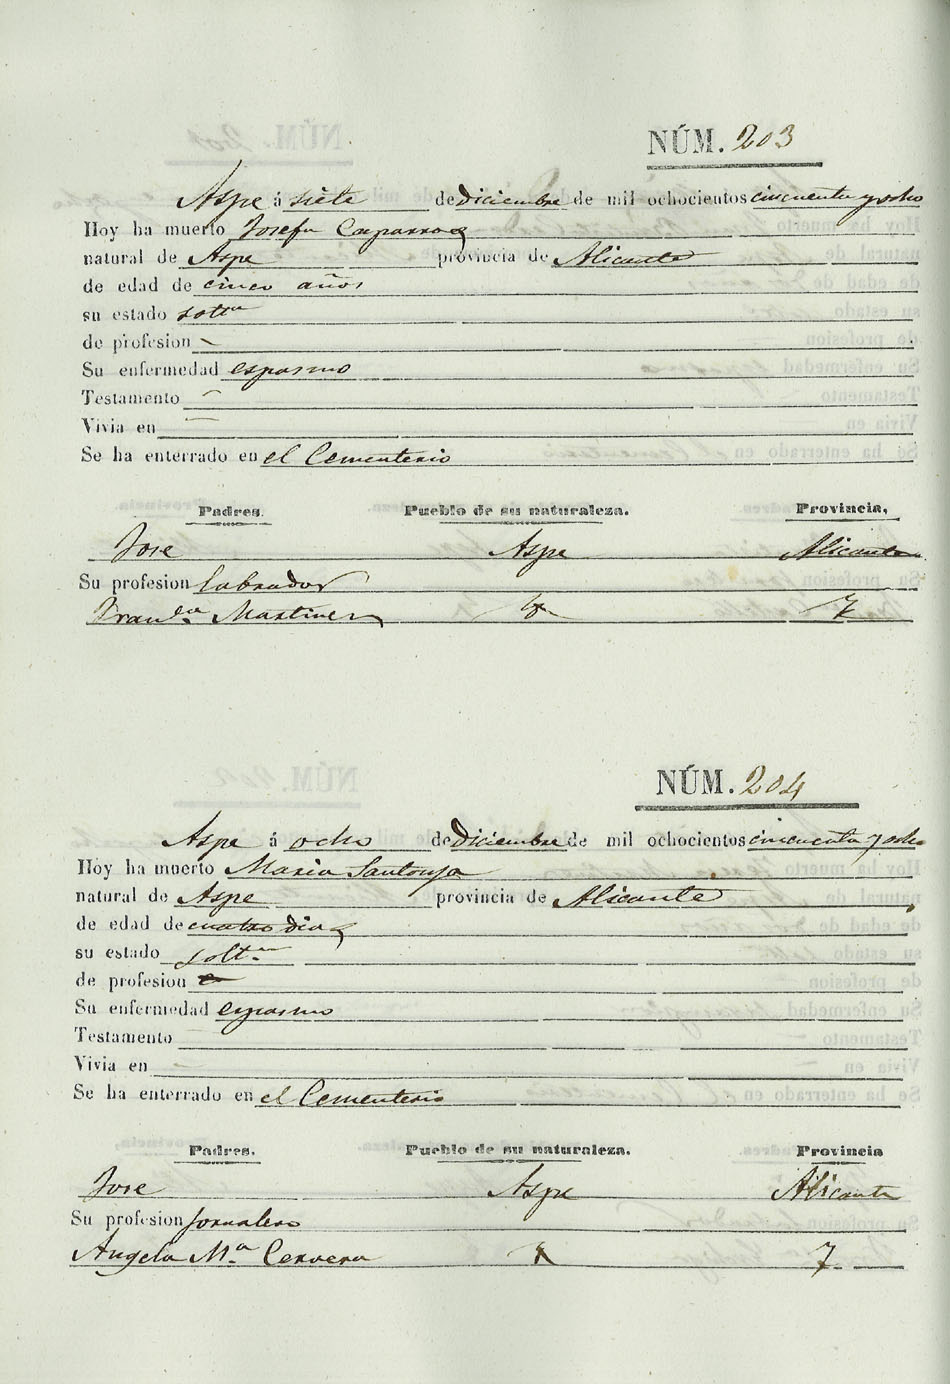 NÚM. 203
Aspe á siete de diciembre de mil ochocientos cincuenta y ocho
Hoy ha muerto Josefa Caparros
natural de Aspe provincia de Alicante
de edad de cinco años
su estado soltra
de profesion -
Su enfermedad espasmo
Testamento -
Vivia en
Se ha enterrado en el Cementerio
Padres. Pueblo de su naturaleza. Provincia,
Jose Aspe Alicante
Su profesion labrador
Franca Martinez
NÚM. 204
Aspe á ocho de diciembre de mil ochocientos cincuenta y ocho
Hoy ha muerto Maria Santonja
natural de Aspe provincia de Alicante
de edad de cuatro dias
su estado soltra
de profesion
Su enfermedad espasmo
Testamento
Vivia en -
Se ha enterrado en el Cementerio
Padres. Pueblo de su naturaleza. Provincia
Jose Aspe Alicante
Su profesion jornalero
Angela Ma Cervera